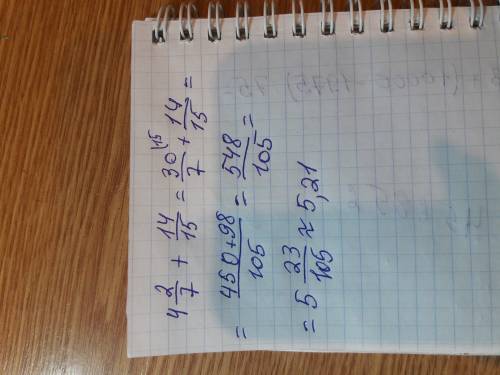 4 2/7 + 14/15 = 30/7 (15 + 14/15 =
= 450+98/105 = 548/105 =
= 5 23/105 ≈ 5,21